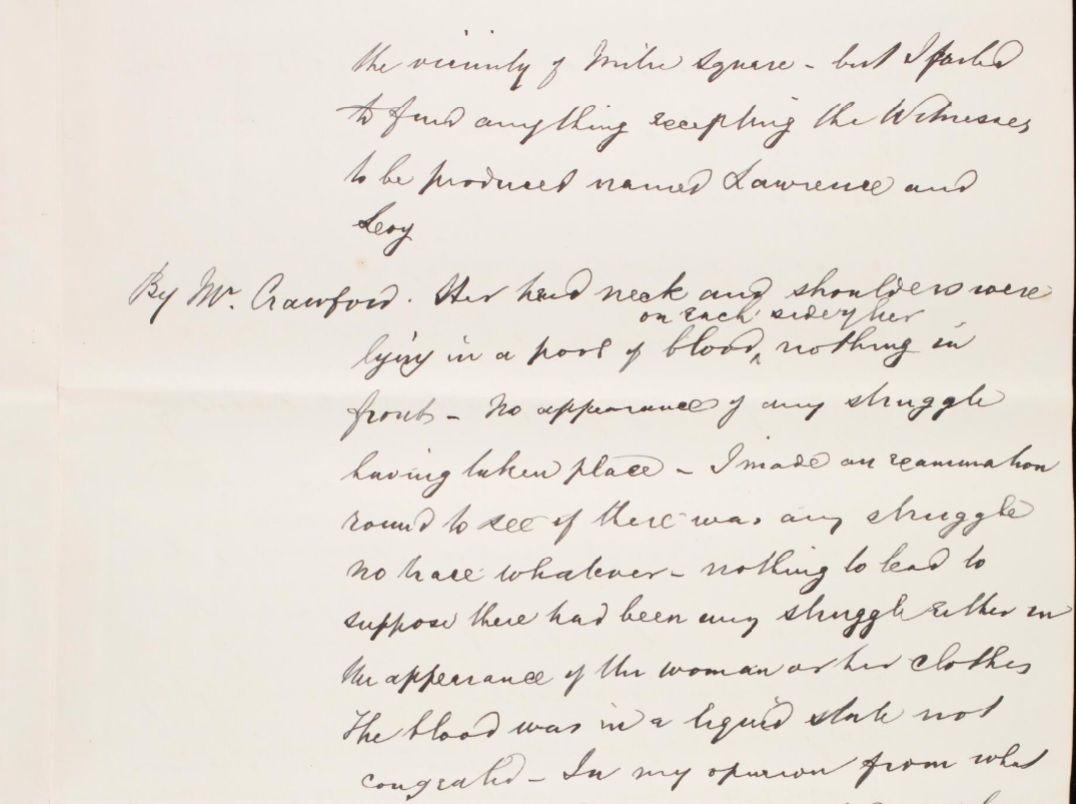 the vicinity of Mitre Square - but I failed
to find anything excepting the Witnesses
to be produced named Lawrence and
Levy
By Mr. Crawford. Her head neck and shoulders were
on each side of her
lying in a pool of blood ‸ nothing in
front - No appearance of any struggle
having taken place - I made an examination
round to see if there was any struggle
no trace whatever - nothing to lead to
suppose there had been any struggle either in
the appearance of the woman or her clothes
The blood was in a liquid state not
congealed - In my opinion from what